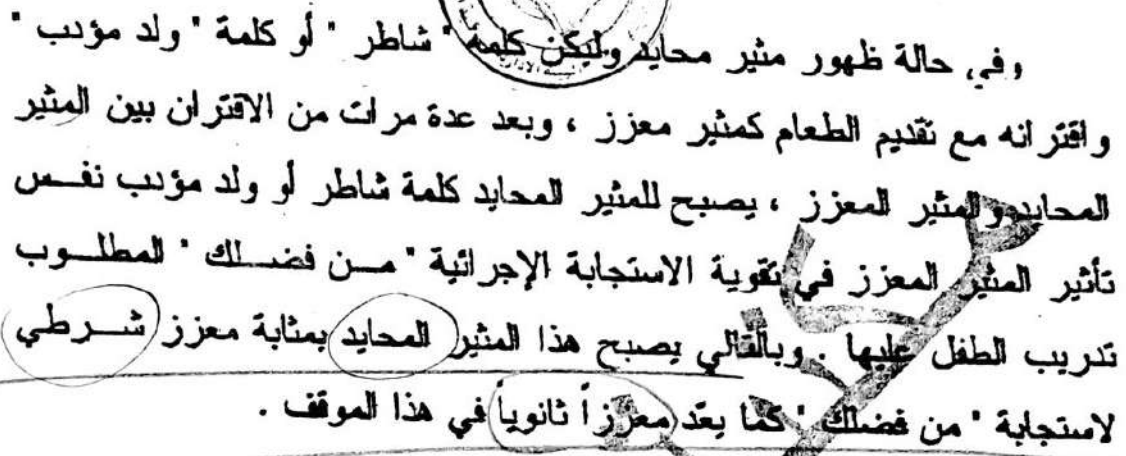 وفي حالة ظهور مثير محايد وليكن كلمة " شاطر " أو كلمة " ولد مؤدب "
واقترانه مع تقديم الطعام كمثير معزز ، وبعد عدة مرات من الاقتران بين المثير
المحايد والمثير المعزز ، يصبح للمثير المحايد كلمة شاطر أو ولد مؤدب نفس
تأثير المثير المعزز في تقوية الاستجابة الإجرائية " من فضلك " المطلوب
تدريب الطفل عليها . وبالتالي يصبح هذا المثير المحايد بمثابة معزز شرطي
لاستجابة " من فضلك " كما يعد معززاً ثانوياً في هذا الموقف .